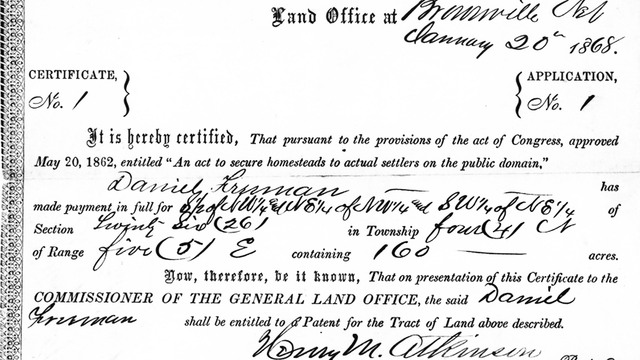 Land Office at Brownville Neb
January 20th 1868.
CERTIFICATE, No. 1
APPLICATION, No. 1
It is hereby certified, That pursuant to the provisions of the act of Congress, approved
May 20, 1862, entitled "An act to secure homesteads to actual settlers on the public domain,"
Daniel Freeman has
made payment in full for S½ of NW¼ & NE¼ of NW¼ and SW¼ of NE¼ of
Section Twenty Six (26) in Township four (4) N
of Range five (5) E containing 160 acres.
Now, therefore, be it known, That on presentation of this Certificate to the
COMMISSIONER OF THE GENERAL LAND OFFICE, the said Daniel
Freeman shall be entitled to a Patent for the Tract of Land above described.
Henry M. Atkinson